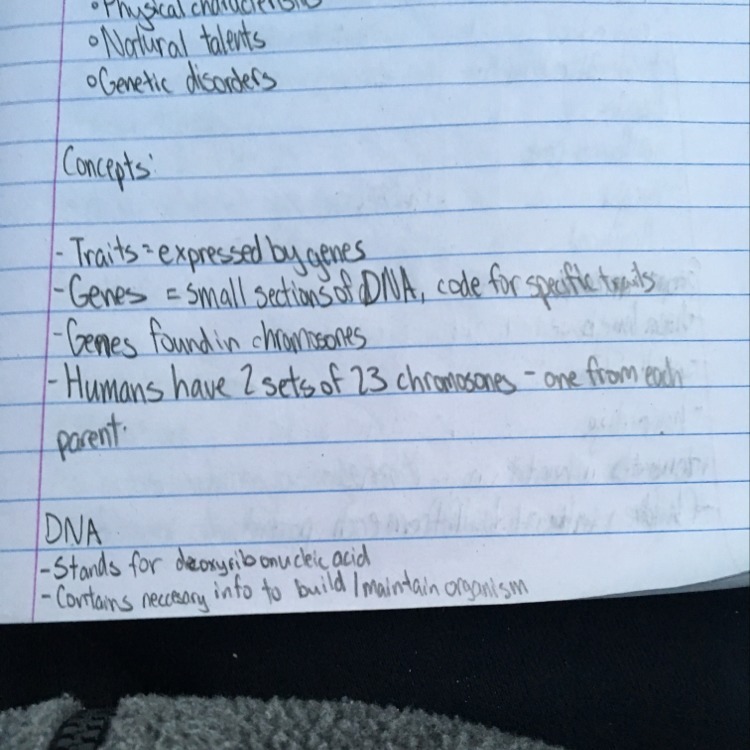 ◦Physical characteristics
◦Natural talents
◦Genetic disorders
Concepts:
- Traits = expressed by genes
- Genes = small sections of DNA, code for specific traits
- Genes found in chromosones
- Humans have 2 sets of 23 chromosones - one from each
parent.
DNA
- Stands for deoxyribonucleic acid
- Contains neccesary info to build / maintain organism